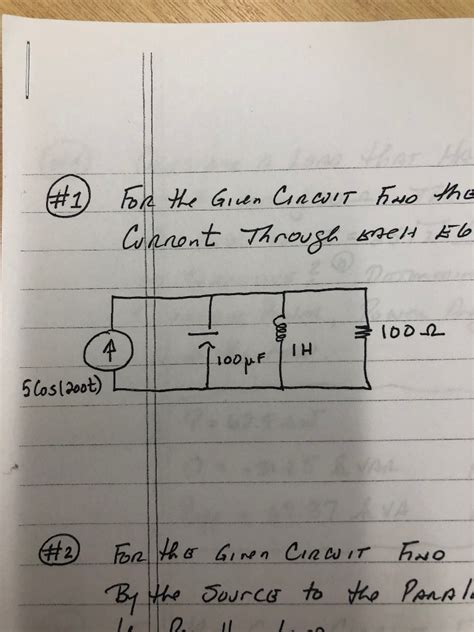 #1 FOR the Given CIRCUIT FIND the
Current Through EACH
100Ω
1H
100μF
5Cos(200t)
#2 FOR the Given CIRCUIT FIND
By the SOURCE to the